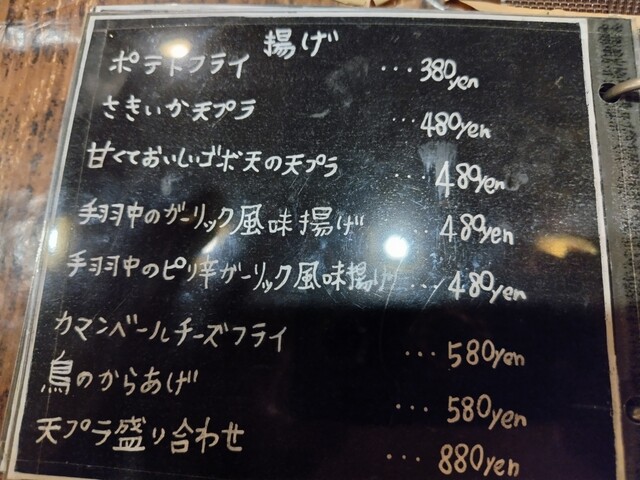 揚げ
ポテトフライ ・・・380yen
さきいか天プラ ・・・480yen
甘くておいしいゴボ天の天プラ ・・480yen
手羽中のガーリック風味揚げ ・・480yen
手羽中のピリ辛ガーリック風味揚げ ・・・480yen
カマンベールチーズフライ ・・・580yen
鳥のからあげ ・・・580yen
天プラ盛り合わせ ・・・880yen